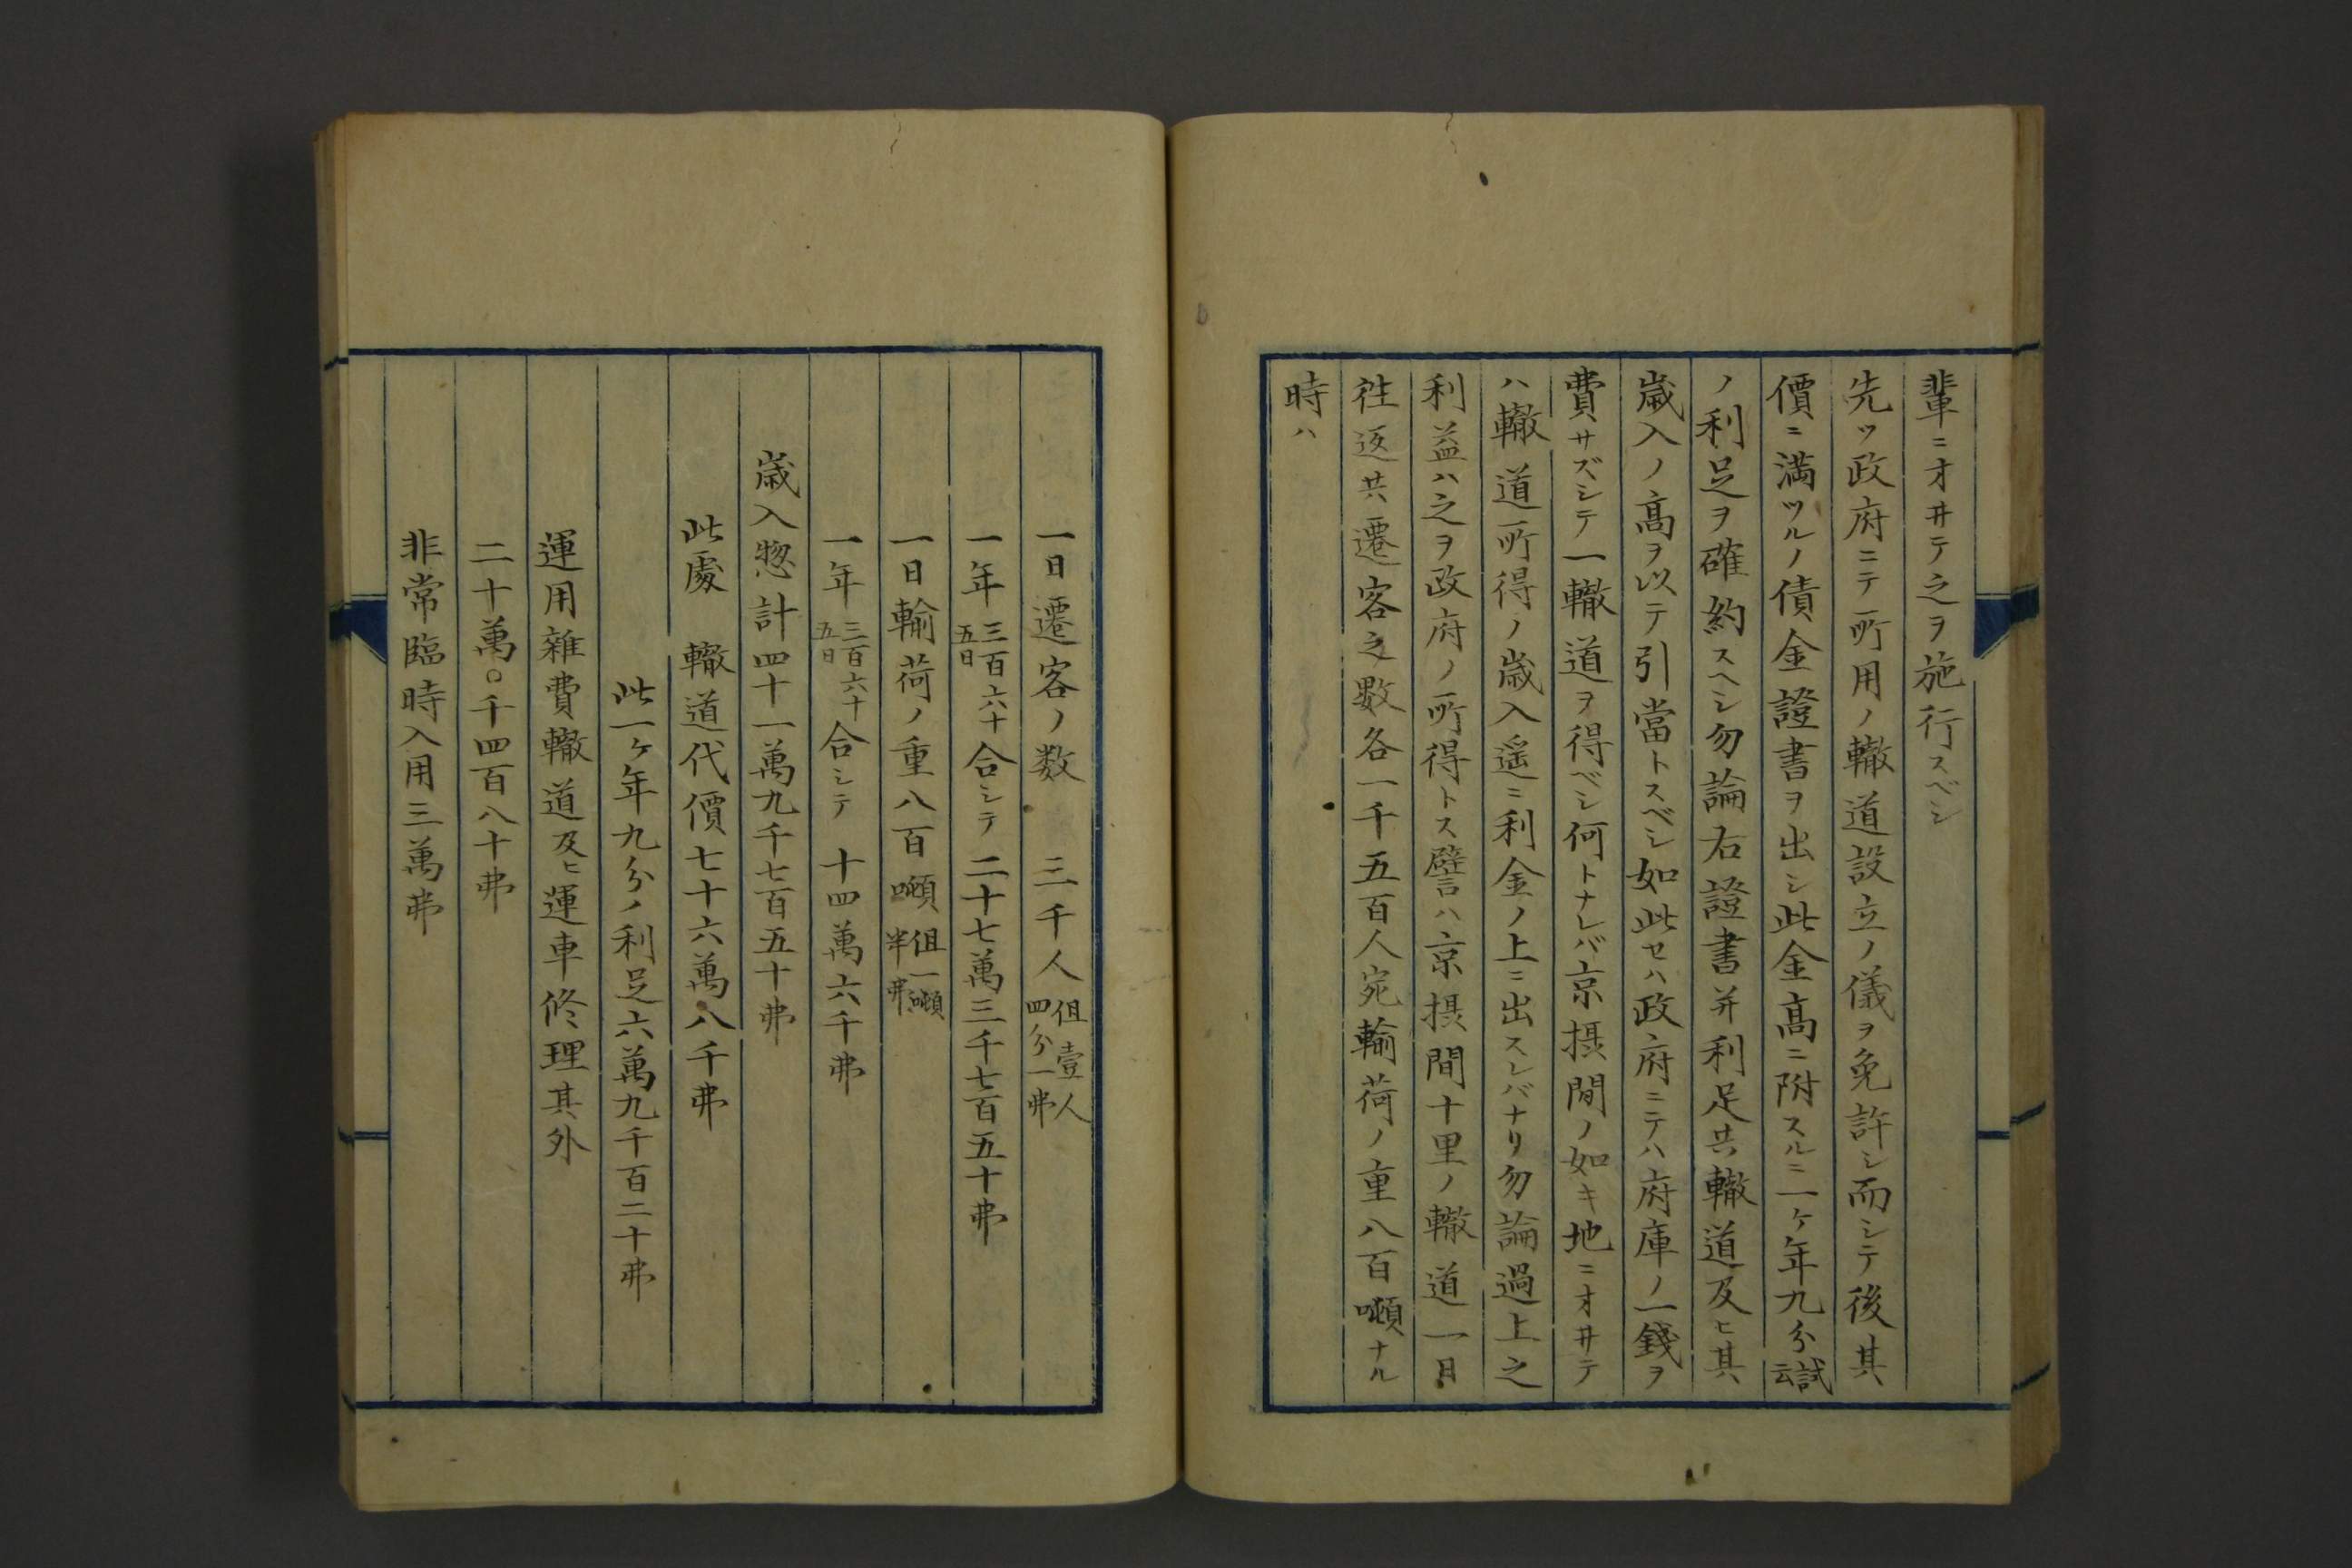 輩ニオヰテ之ヲ施行スベシ
先ツ政府ニテ所用ノ轍道設立ノ儀ヲ免許シ而シテ後其
價ニ満ツルノ債金證書ヲ出シ此金高ニ附スルニ一ケ年九分試云
ノ利足ヲ確約スヘシ勿論右證書并利足共轍道及ヒ其
歳入ノ高ヲ以テ引當トスベシ如此セハ政府ニテハ府庫ノ一錢ヲ
費サズシテ一轍道ヲ得ベシ何トナレバ京摂間ノ如キ地ニオヰテ
ハ轍道所得ノ歳入遥ニ利金ノ上ニ出スレバナリ勿論過上之
利益ハ之ヲ政府ノ所得トス譬ハ京摂間十里ノ轍道一日
往返共遷客之數各一千五百人宛輸荷ノ重八百噸ナル
時ハ
一日遷客ノ数 三千人但壹人四分一弗
一年三百六十五日合シテ二十七萬三千七百五十弗
一日輸荷ノ重八百噸但一噸半弗
一年三百六十五日合シテ 十四萬六千弗
歳入惣計四十一萬九千七百五十弗
此處 轍道代價七十六萬八千弗
此一ケ年九分ノ利足六萬九千百二十弗
運用雜費轍道及ヒ運車修理其外
二十萬〇千四百八十弗
非常臨時入用三萬弗